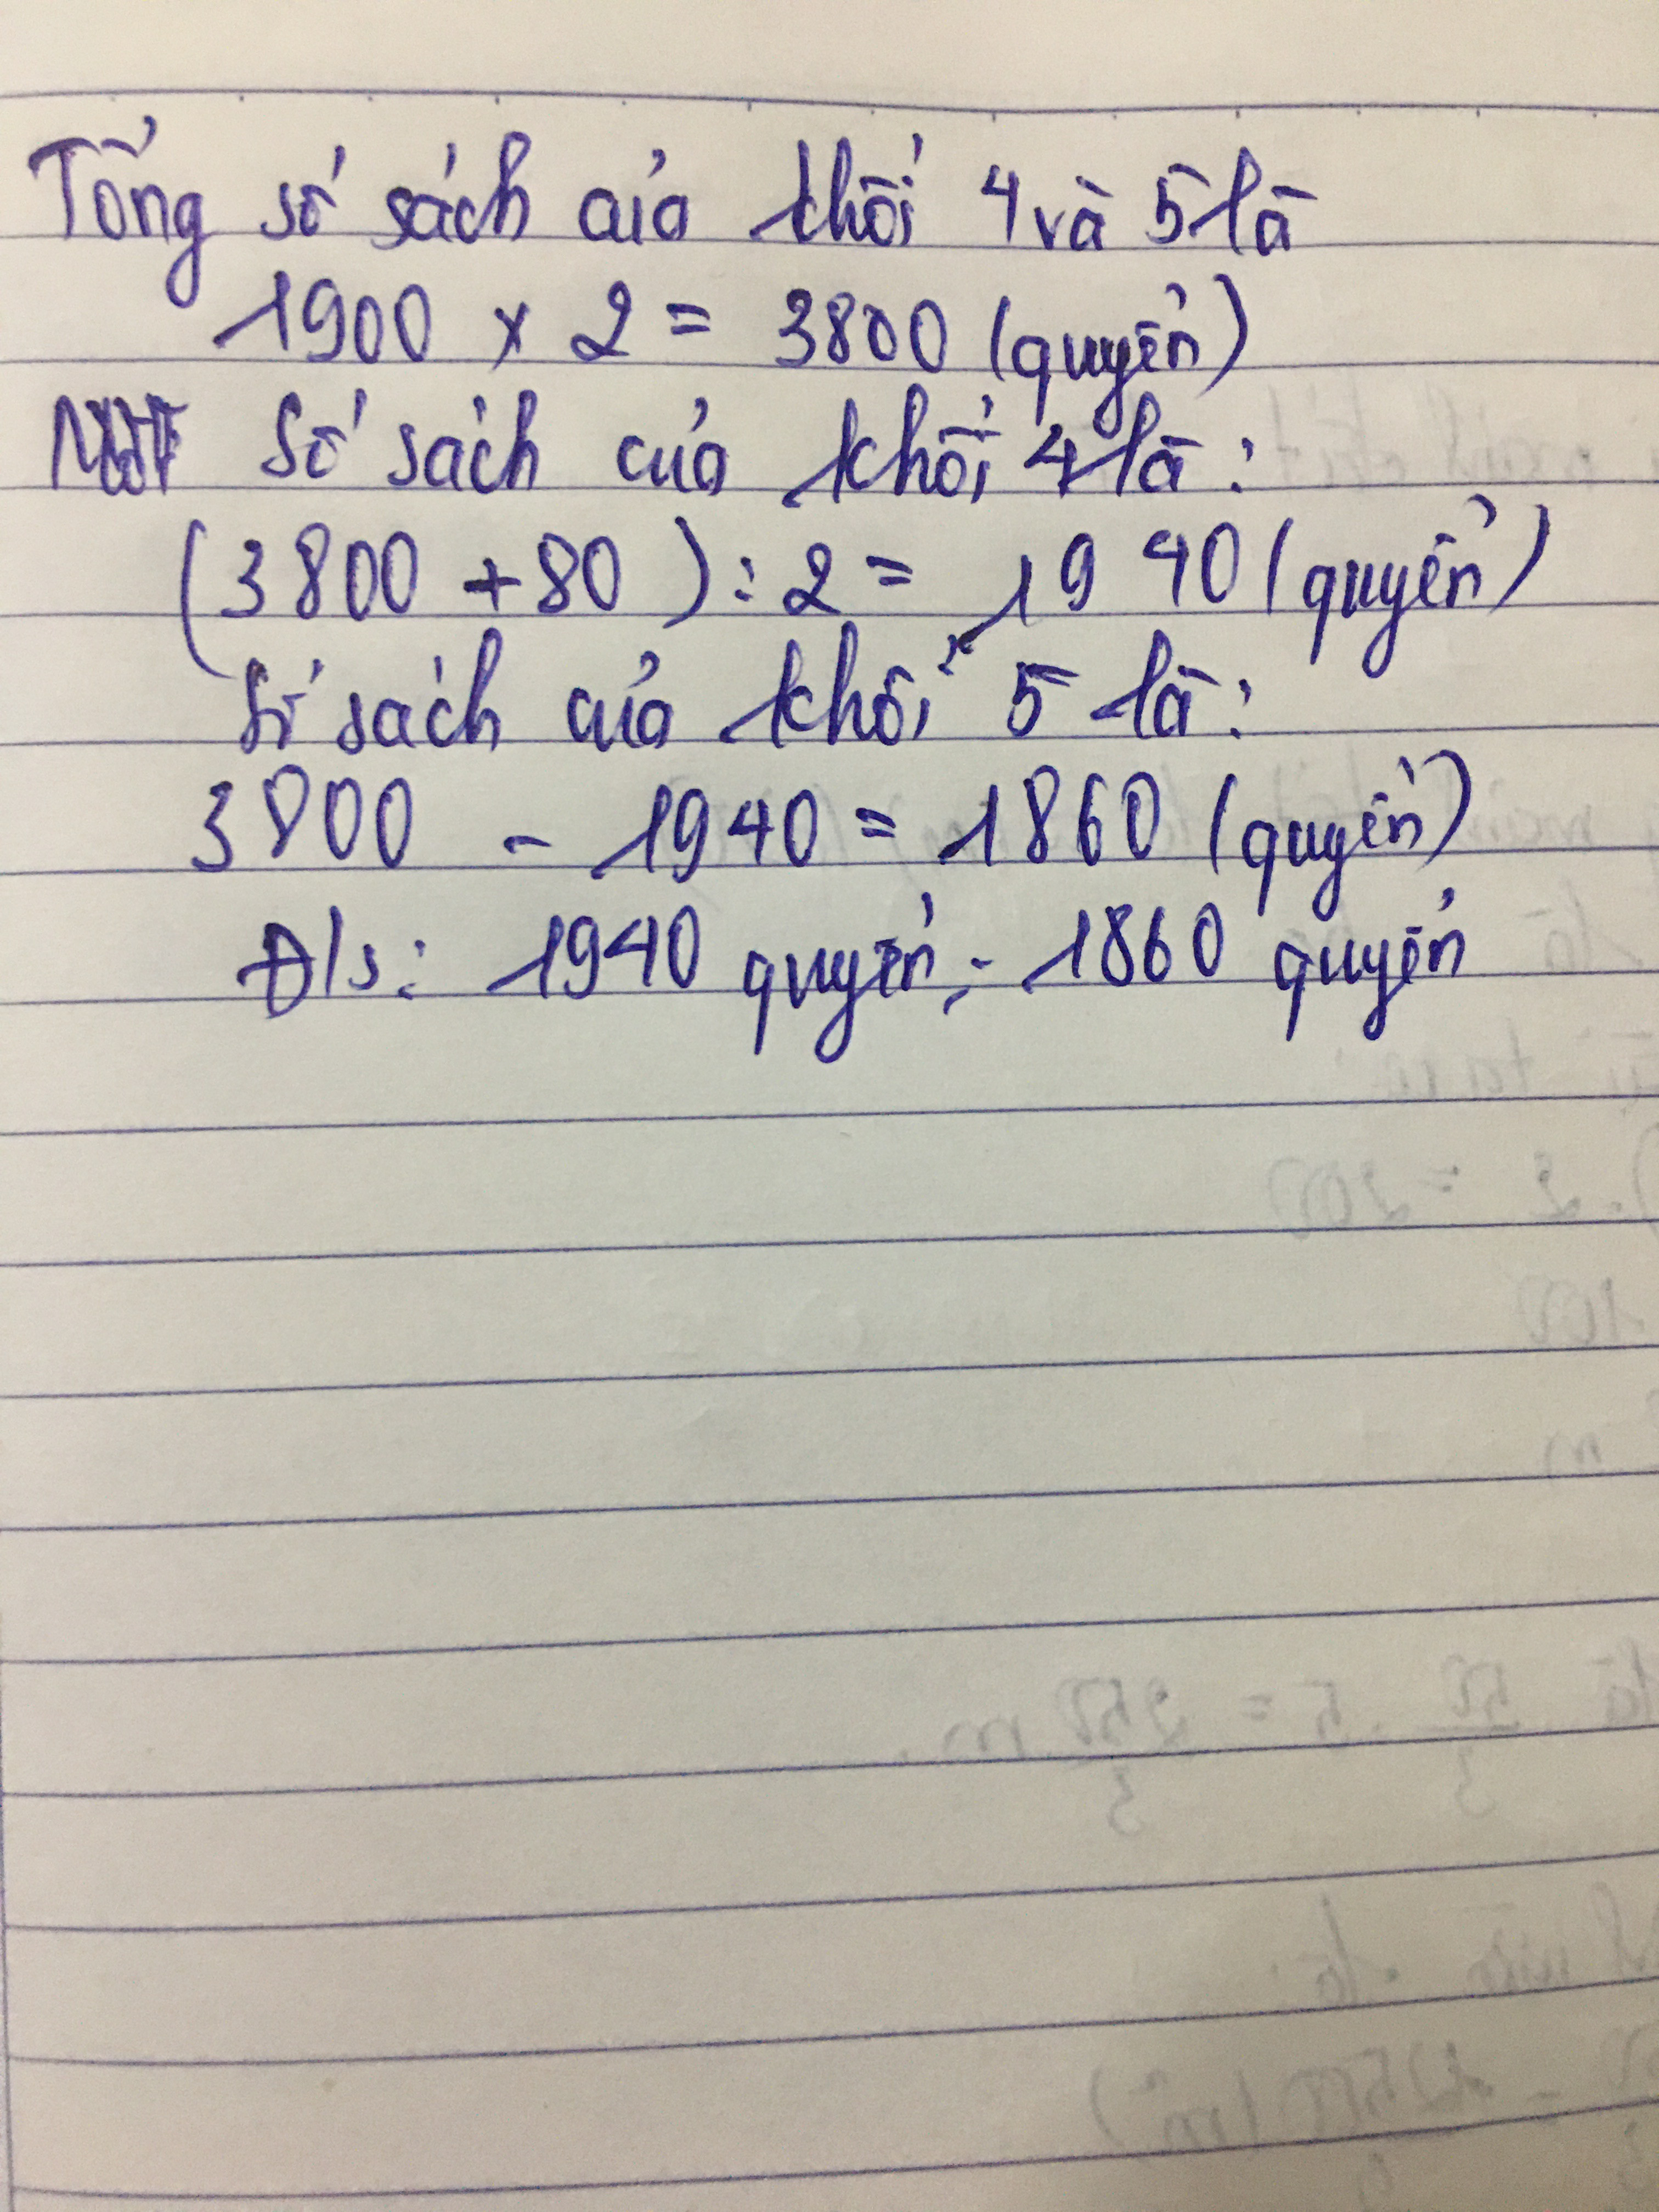 Tổng số sách của khối 4 và 5 là
1900 x 2 = 3800 (quyển)
Số sách của khối 4 là:
(3800 + 80) : 2 = 1940 (quyển)
Số sách của khối 5 là:
3800 - 1940 = 1860 (quyển)
Đ/s: 1940 quyển; 1860 quyển